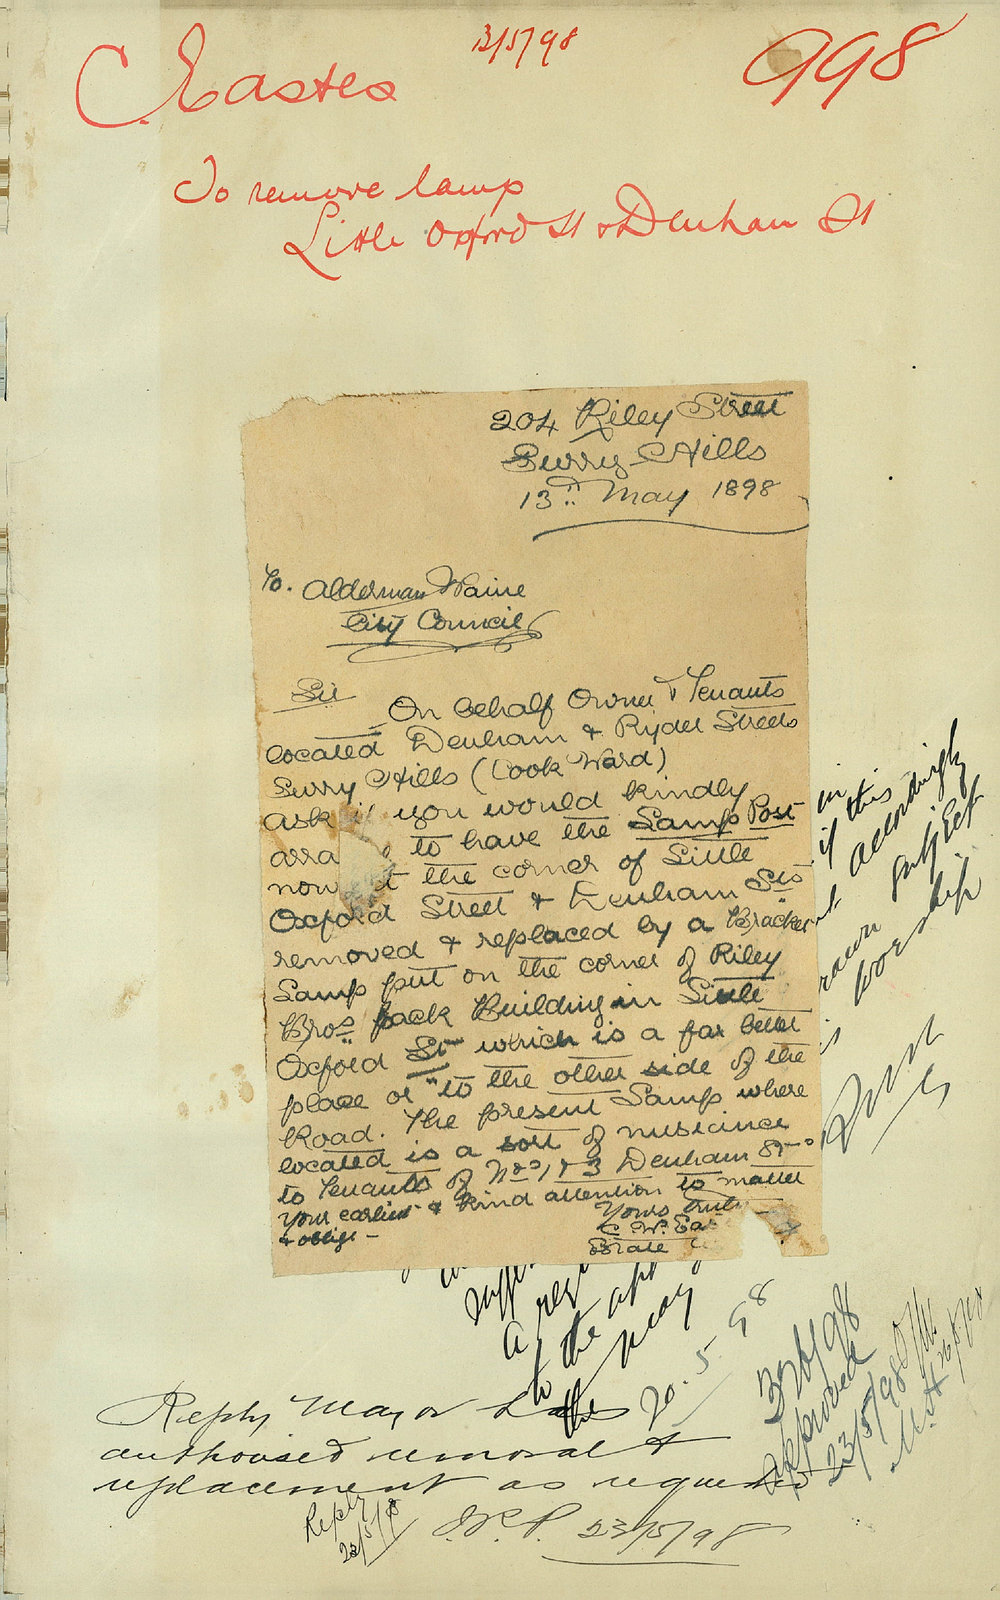 13/5/98
998
C. Eastes
To remove lamp
Little Oxford St & Denham St
204 Riley Street
Surry Hills
13th May 1898
To. Alderman Waine
City Council
Sir
On behalf Owner & Tenants
located Denham & Ryder Streets
Surry Hills (Cook Ward)
ask if you would kindly
arra to have the Lamp Post
now at the corner of Little
Oxford Street & Denham Sts
removed & replaced by a Bracket
Lamp put on the corner of Riley
Bros. back Building in Little
Oxford St which is a far better
place or to the other side of the
Road. The present Lamp where
located is a sort of nusicince
to Tenants of Nos 1 & 3 Denham St
Your earliest & kind attention to matter
& oblige -
Yours truly
C. W. Eas
Estate
in
if this
accordingly
subject
worship
a
to the
may
20.5.98
Reply Mayor has
authorised removal &
replacement as requested
Approved
23/5/98
Reply
23/5/98
23/5/98